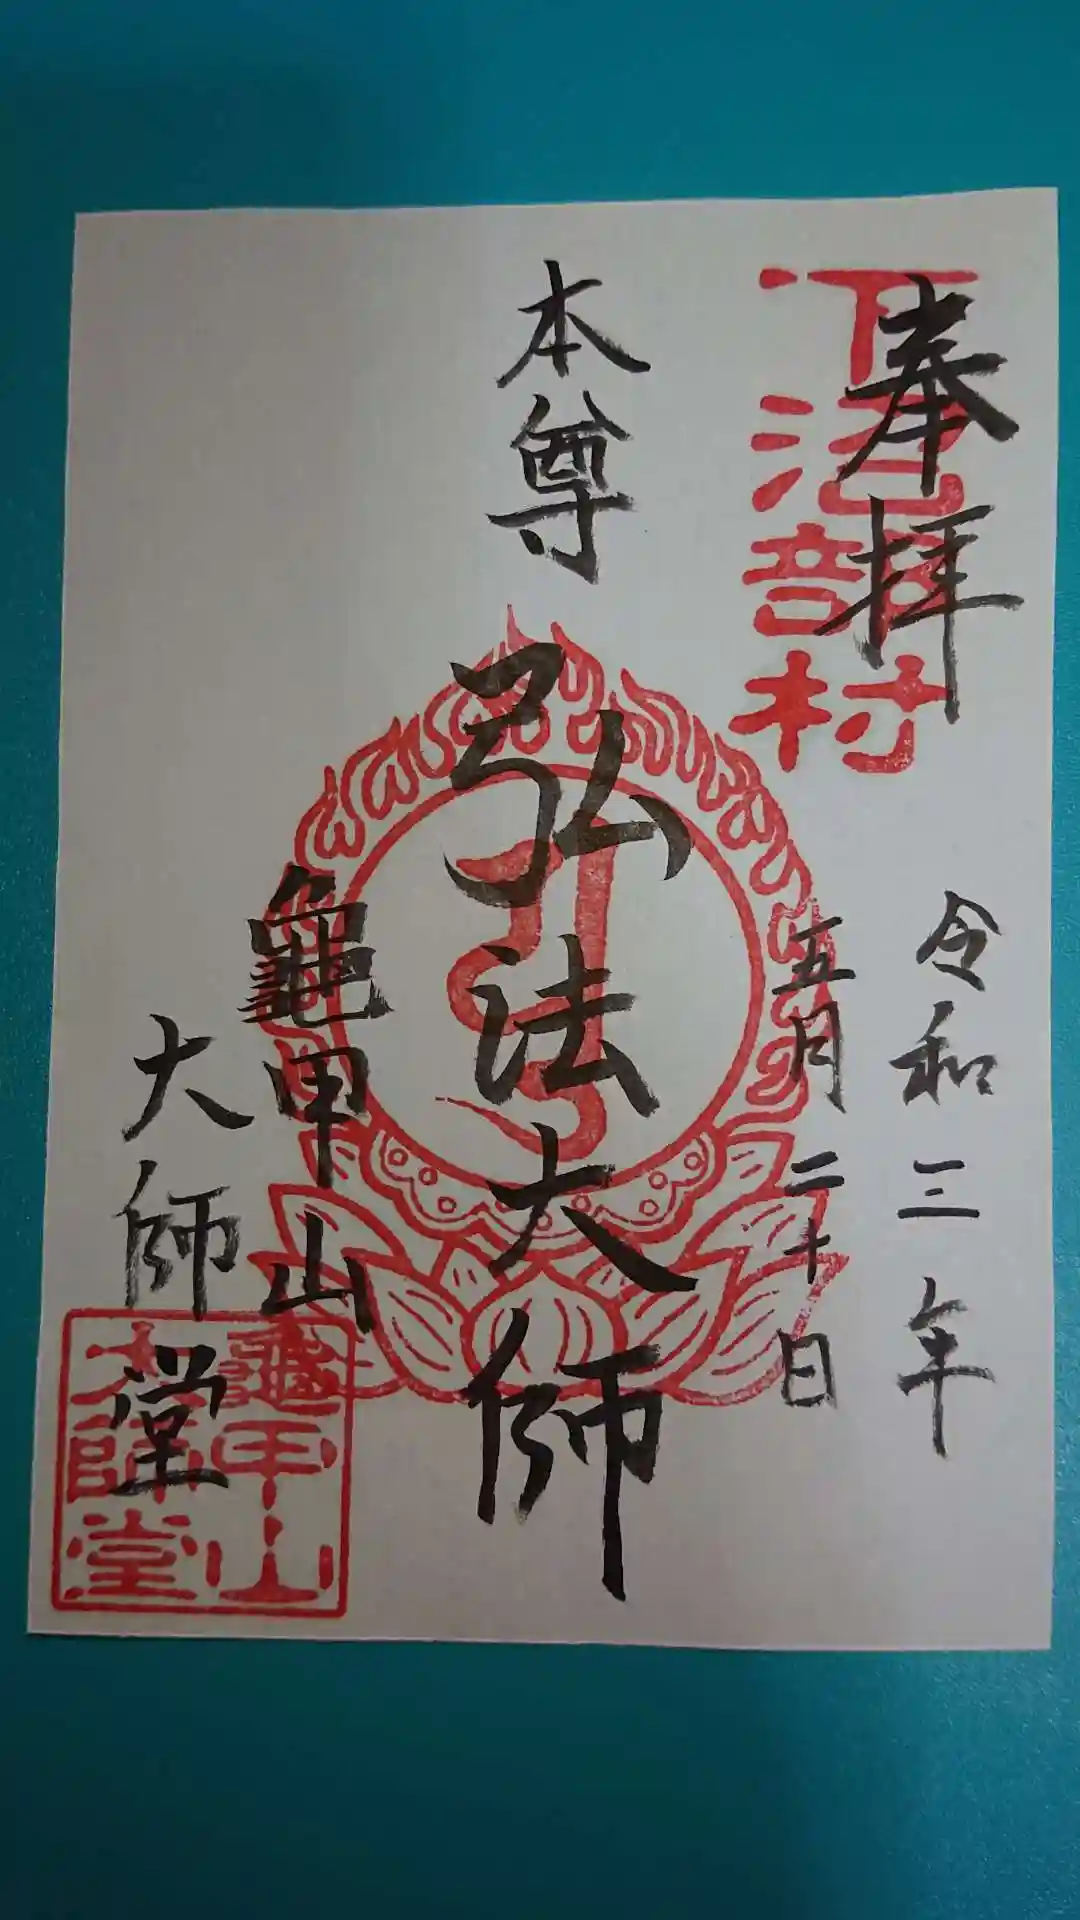 奉拝
下沼部村
令和三年
五月二十日
本尊
弘法大師
龜甲山
大師堂
龜甲山
大師堂